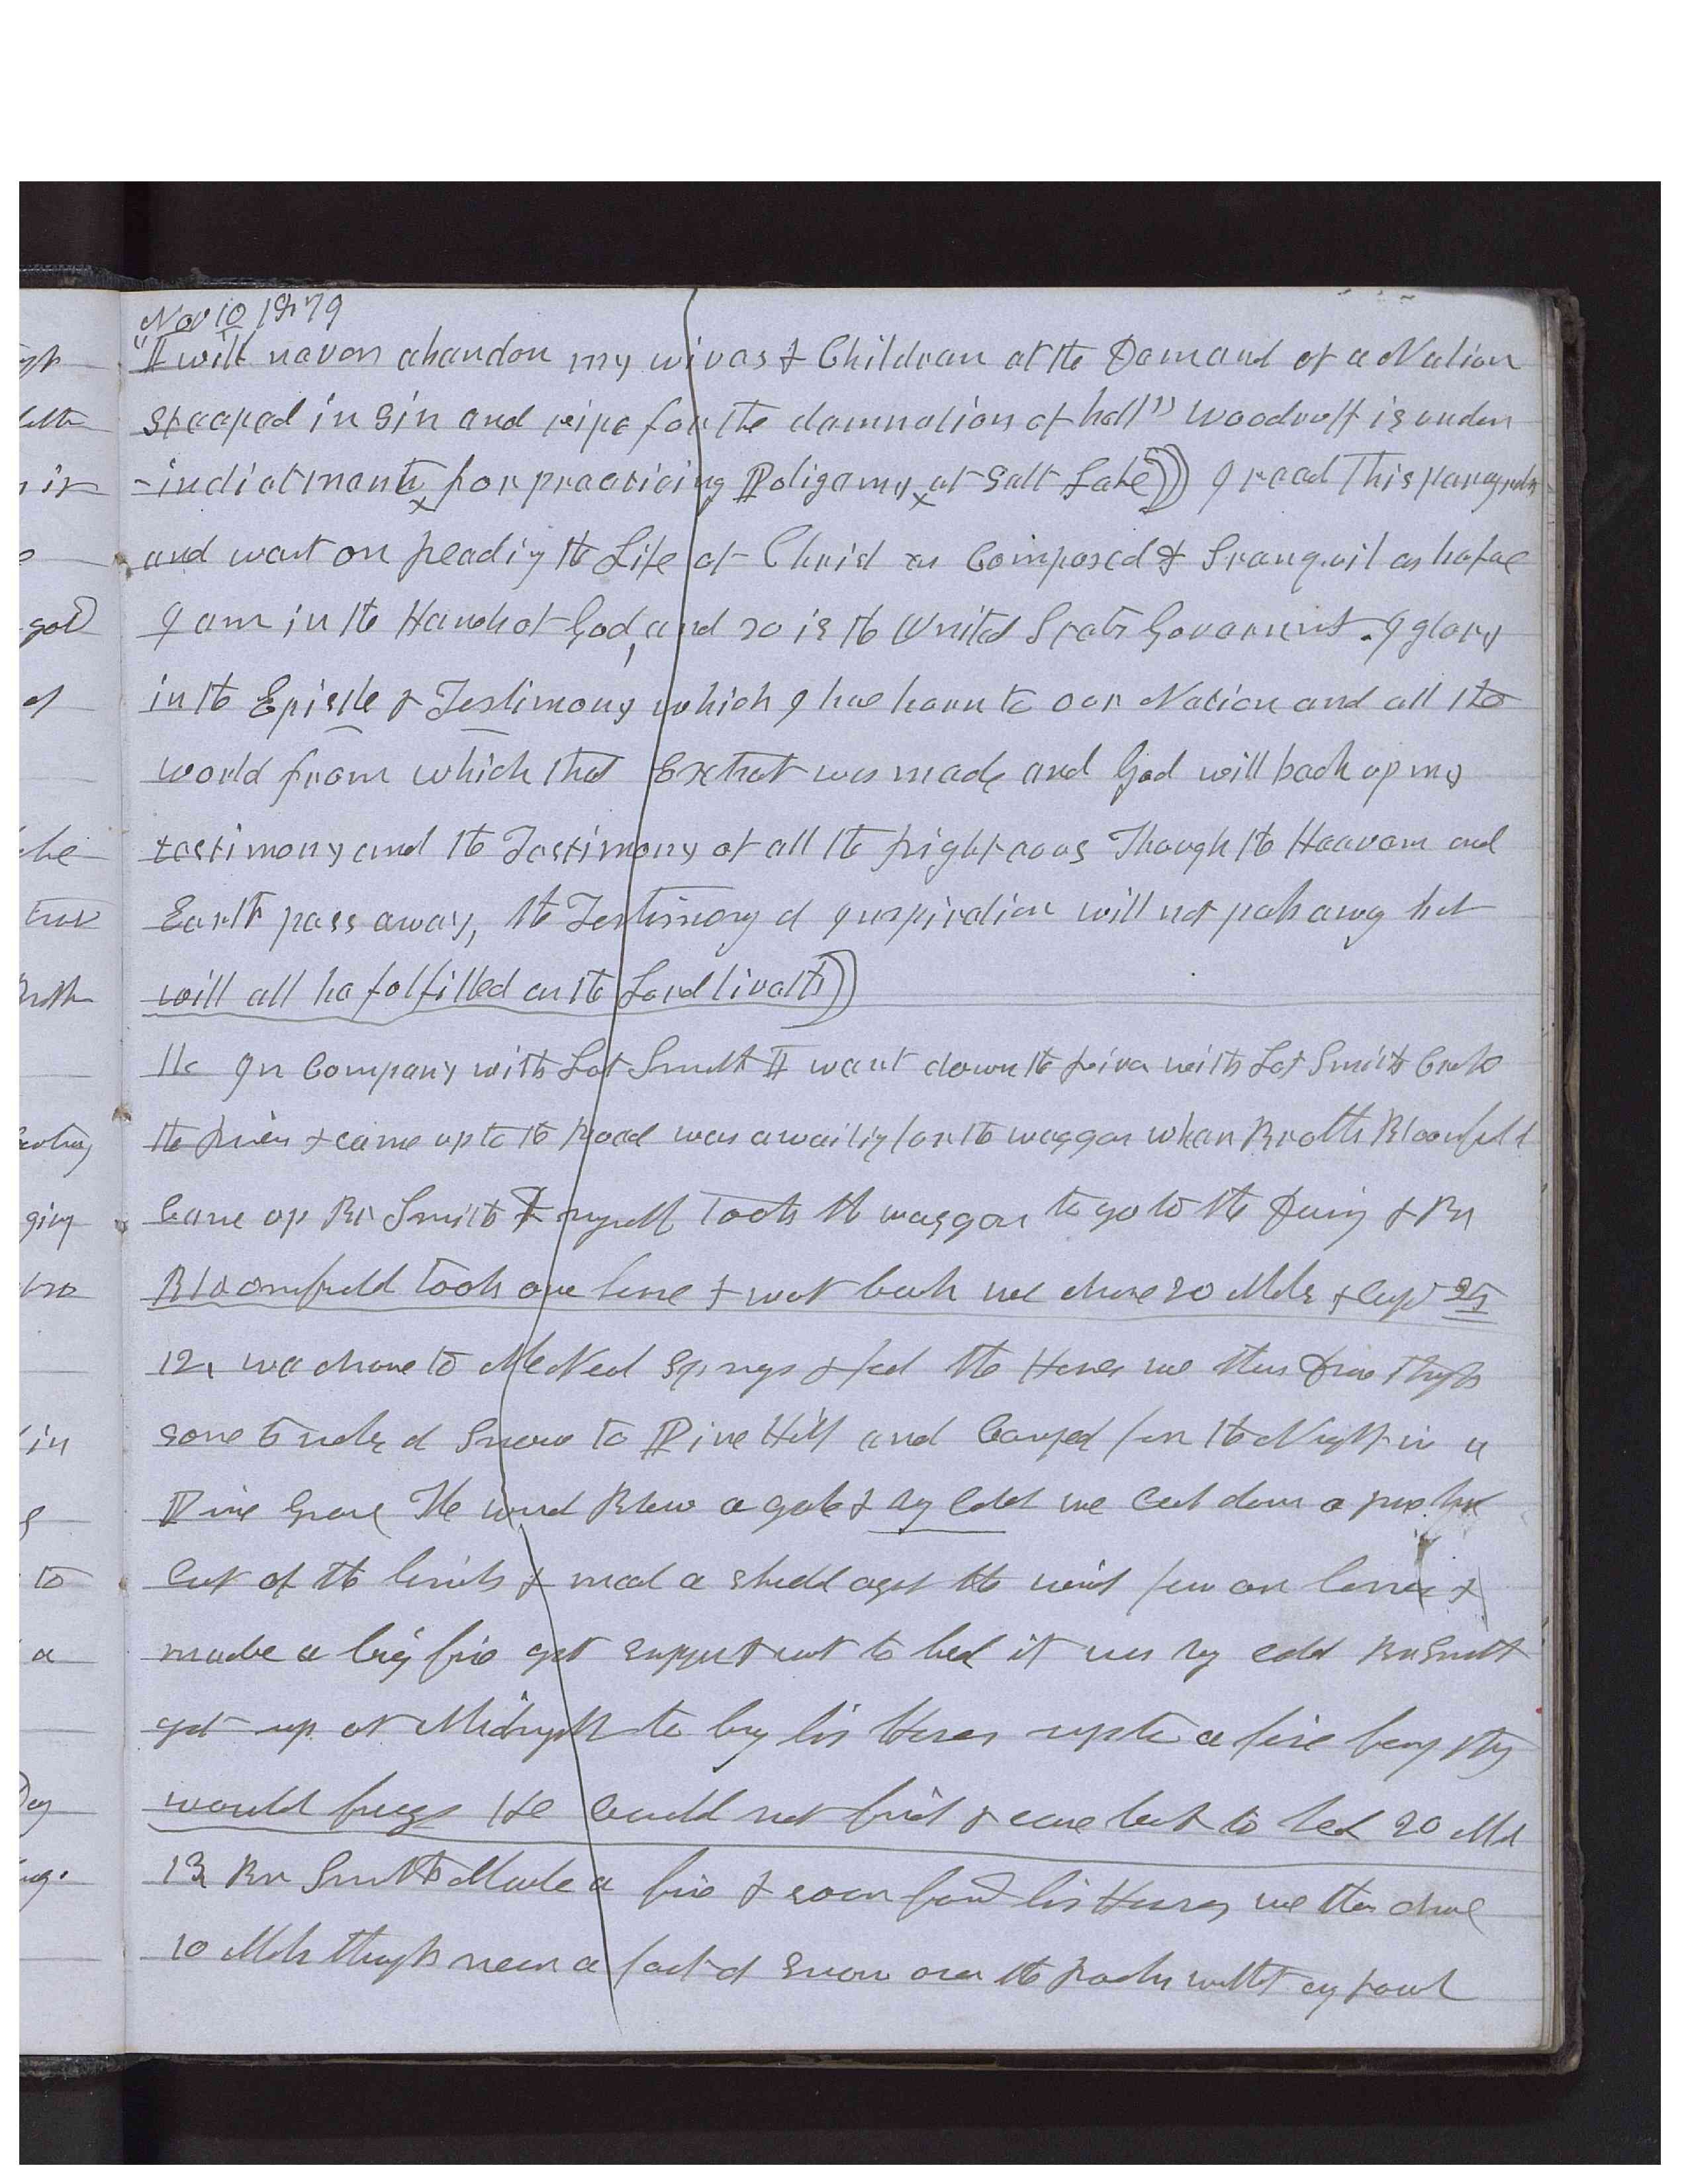 Nov 10 1879
"I will never abandon my wives & Children at the Demand of a Nation
steeped in sin and ripe for the damnation of hell" Woodruff is under
indictment for practicing Poligamy at Salt Lake)) I read This paragraph
and went on reading the Life of Christ as Composed & Tranquil as before
I am in the Hands of God, and so is the United States Government. I glory
in the Epistle & Testimony which I have born to our Nation and all the
world from which that Extrat was made and God will back up my
testimony and the Testimony of all the righteous Though the Heavens and
Earth pass away, the Testimony of Inspiration will not pass away but
will all be fulfilled as the Lord liveth))
11 In Company with Lot Smith I went down the river with Lot Smith
the River & came up to the Road was awaiting for the waggon when Brother Bloomfield
Came up Br Smith & myself Took the waggon to go to the & Br
Bloomfield took our & went back we drove 20 Miles & Camp 25
12, we drove to McNeal Springs & fed the Horses we then drove Through
some miles of Snow to Pine Hill and Camped for the Night in a
Pine Grove The wind Blew a gale & vry Cold we cut down a
Cut of the limbs & mad a shedd agst the wind &
made a big fire got supper & wnt to bed it was vry cold Br Smith
got up at Midnight to his Horses up to a fire they
would freeze He Could not find & came back to bed 20 Mils
13 Br Smith Made a fire & soon found his Horses we then drove
10 Miles through near a foot of Snow over the Rocks without any road
ah
it
god
of
he
giving
in
to
a